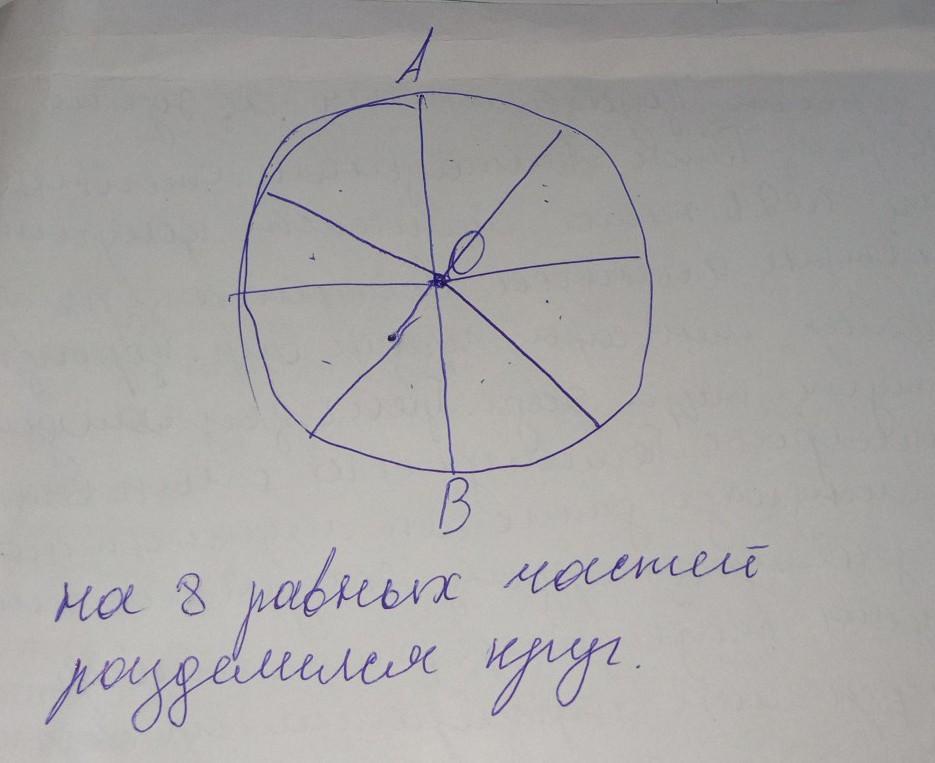 А
О
В
на 8 равных частей
разделился круг.